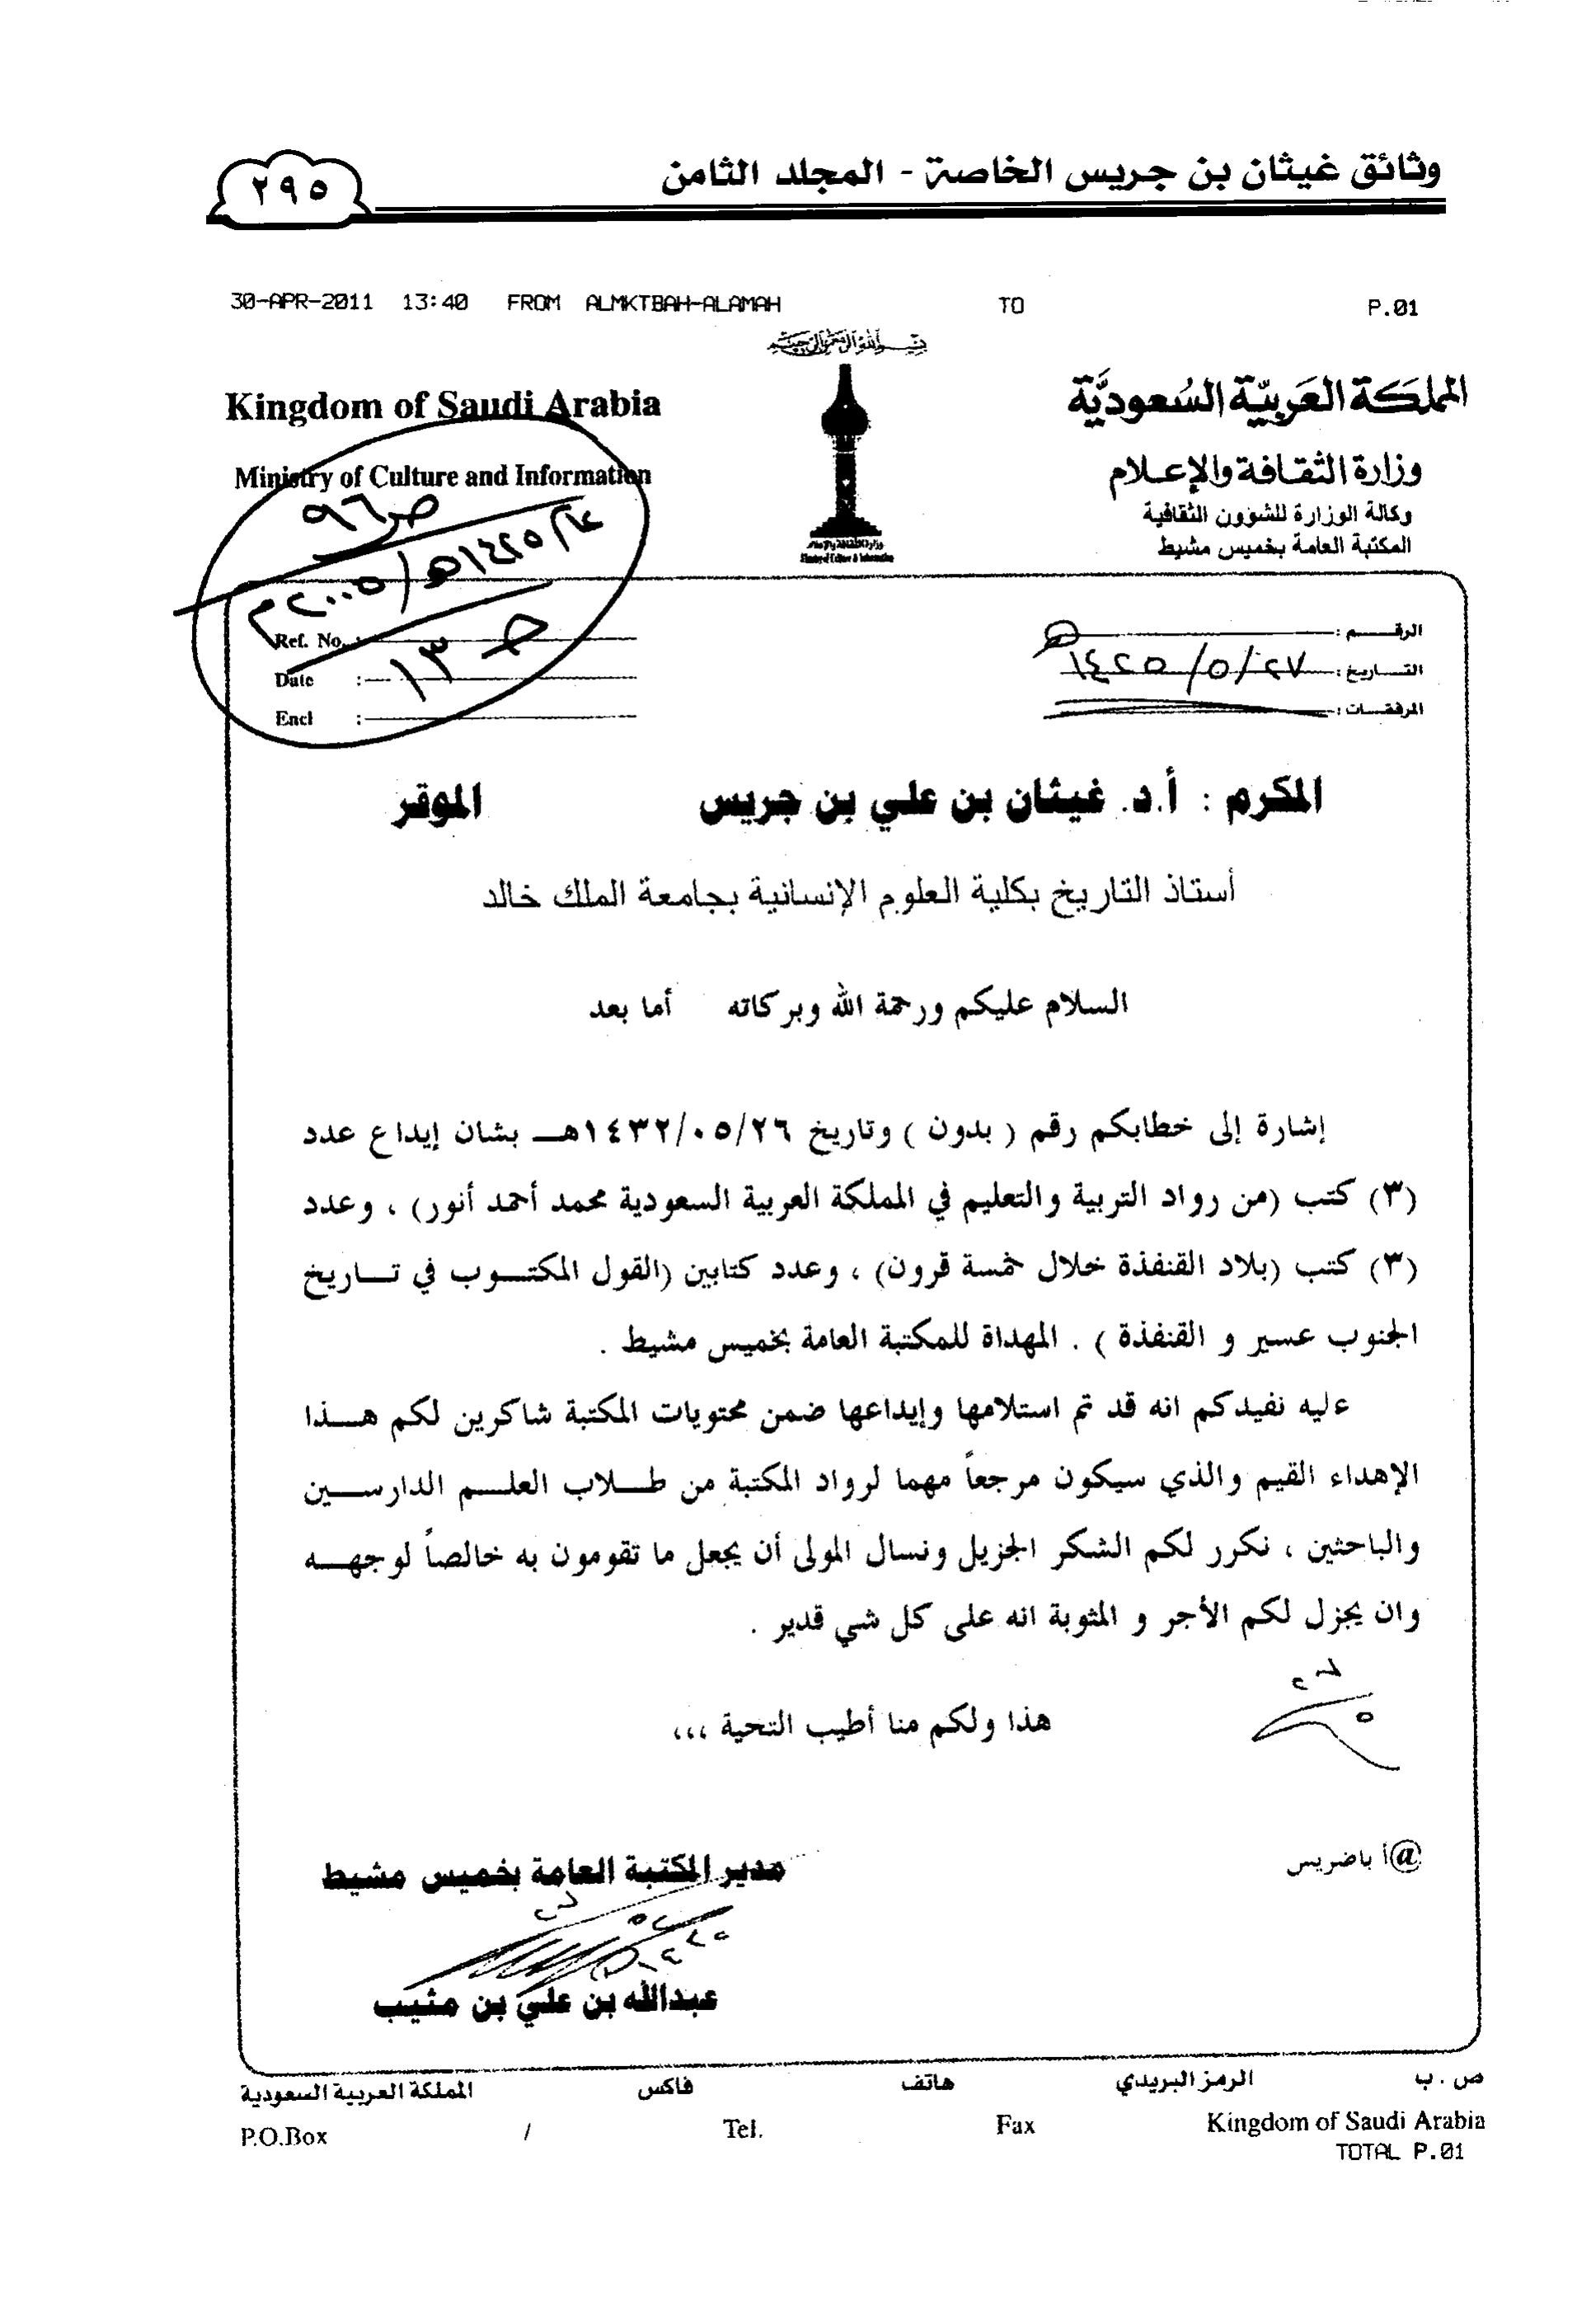 وثائق غيثان بن جريس الخاصة - المجلد الثامن
٢٩٥
30-APR-2011 13:40 FROM ALMKTBAH-ALAMAH TO P.01
المملكة العربية السعودية
وزارة الثقافة والإعلام
وكالة الوزارة للشؤون الثقافية
المكتبة العامة بخميس مشيط
Kingdom of Saudi Arabia
Ministry of Culture and Information
ص٩٦
جـ ١٣
الرقـــم :
التـــاريخ :
المرفقـــات :
Ref. No. :
Date :
Encl :
المكرم : أ.د. غيثان بن علي بن جريس الموقر
أستاذ التاريخ بكلية العلوم الإنسانية بجامعة الملك خالد
السلام عليكم ورحمة الله وبركاته أما بعد
إشارة إلى خطابكم رقم ( بدون ) وتاريخ ١٤٣٢/٠٥/٢٦هـــ بشان إيداع عدد
(٣) كتب (من رواد التربية والتعليم في المملكة العربية السعودية محمد أحمد أنور) ، وعدد
(٣) كتب (بلاد القنفذة خلال خمسة قرون) ، وعدد كتابين (القول المكتـــوب في تـــاريخ
الجنوب عسير و القنفذة ) . المهداة للمكتبة العامة بخميس مشيط .
عليه نفيدكم انه قد تم استلامها وإيداعها ضمن محتويات المكتبة شاكرين لكم هـــذا
الإهداء القيم والذي سيكون مرجعاً مهما لرواد المكتبة من طـــلاب العلـــم الدارســـين
والباحثين ، نكرر لكم الشكر الجزيل ونسال المولى أن يجعل ما تقومون به خالصاً لوجهـــه
وان يجزل لكم الأجر و المثوبة انه على كل شي قدير .
هذا ولكم منا أطيب التحية ،،،
@أ باضريس
مدير المكتبة العامة بخميس مشيط
عبدالله بن علي بن مثيب
ص . ب الرمز البريدي هاتف فاكس المملكة العربية السعودية
P.O.Box / Tel. Fax Kingdom of Saudi Arabia
TOTAL P.01